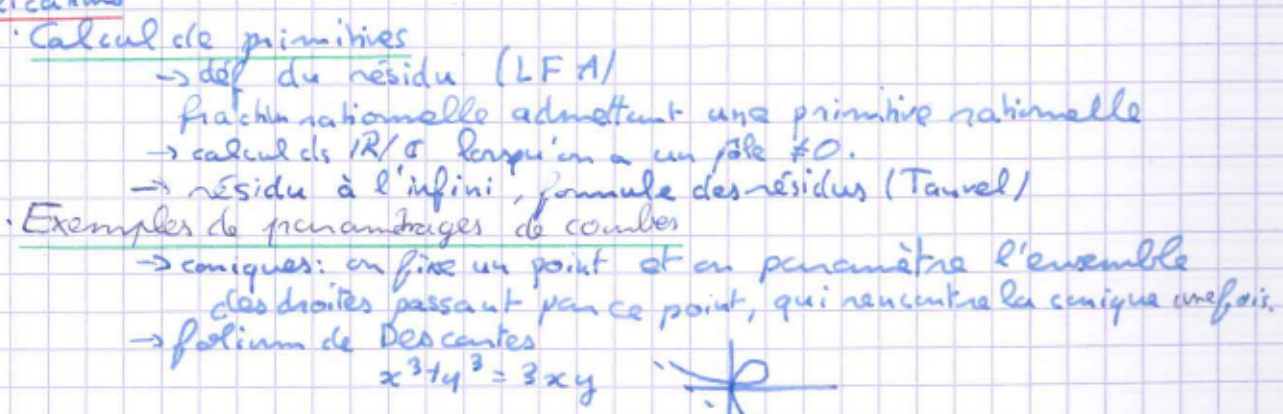 · Calcul de primitives
→ déf du résidu (LFA)
fraction rationnelle admettant une primitive rationnelle
→ calcul ds ℝ/ℂ lorsqu'on a un pôle ≠0.
→ résidu à l'infini, formule des résidus (Tauvel)
· Exemples de paramétrages de courbes
→ coniques: on fixe un point et on paramètre l'ensemble
des droites passant par ce point, qui rencontre la conique une fois.
→ folium de Descartes
x³+y³ = 3xy